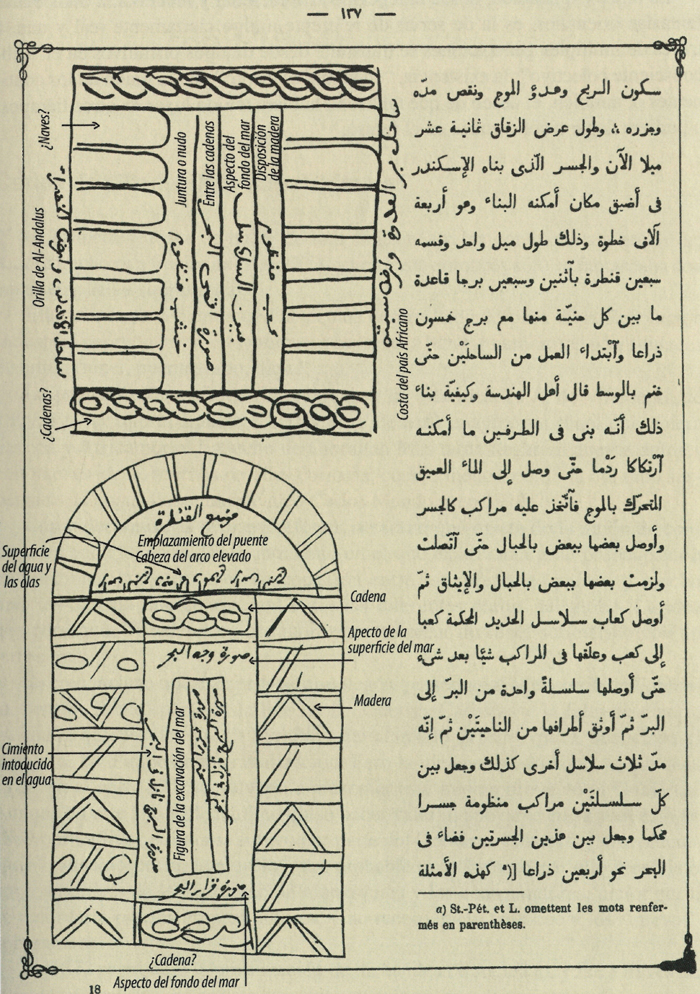 — ١٣٧ —
سكون الريح وهدوّ الموج ونقص مدّه
وجزره ۞ وطول عرض الزقاق ثمانية عشر
ميلا الآن والجسر الّذى بناه الإسكندر
فى أضيق مكان أمكنه البناء وهو أربعة
آلاف خطوة وذلك طول ميل واحد وقسمه
سبعين قنطرة بآثنين وسبعين برجا قاعدة
ما بين كل حنيّة منها مع برج خمسون
ذراعا وآبتداء العمل من الساحلَيْن حتّى
ختم بالوسط قال أهل الهندسة وكيفيّة بناء
ذلك أنّه بنى فى الطرفين ما أمكنه
آرتكاكا رَدْما حتّى وصل إلى الماء العميق
المتحرّك بالموج فآتّخذ عليه مراكب كالجسر
وأوصل بعضها ببعض بالحبال حتّى آتّصلت
ولزمت بعضها ببعض بالحبال والإيثاق ثمّ
أوصل كعاب سلاسل الحديد المحكمة كعبا
إلى كعب وعلّقها فى المراكب شيًا بعد شىء
حتّى أوصلها سلسلةً واحدة من البرّ إلى
البرّ ثمّ أوثق أطرافها من الناحيتَيْن ثمّ إنّه
مدّ ثلاث سلاسل أخرى كذلك وجعل بين
كلّ سلسلتَيْن مراكب منظومة جسرا
محكما وجعل بين هذين الجسرتين فضاء فى
البحر نحو أربعين ذراعا [(a كهذه الأمثلة
a) St.-Pét. et L. omettent les mots renfer-
més en parenthèses.
¿Naves?
Orilla de Al-Andalus
¿Cadenas?
Juntura o nudo
Entre las cadenas
Aspecto del
fondo del mar
Disposición
de la madera
Costa del país Africano
خشب منظوم
صورة
موضع القنطرة
Emplazamiento del puente
Cabeza del arco elevado
Superficie
del agua y
las olas
Cadena
صورة وجه البحر
Apecto de la
superficie del mar
Madera
Cimiento
intoducido
en el agua
Figura de la excavación del mar
صورة قرار البحر
¿Cadena?
Aspecto del fondo del mar
18